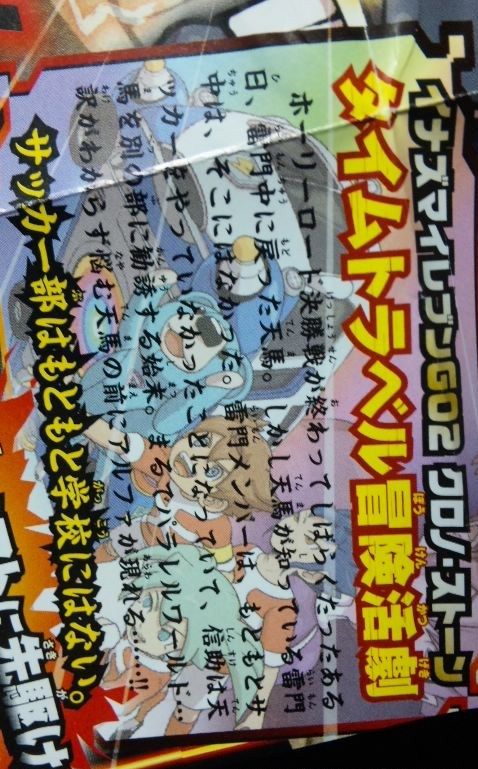 イナズマイレブンGO2 クロノ・ストーン
タイムトラベル冒険活劇
ホーリーロード決勝戦が終わってしばらくたったある
日、雷門中に戻った天馬。しかし天馬が知っている雷門
中は、そこにはなかった。雷門メンバーは、もともとサ
ッカーをやっていなかったことになっていて、信助は天
馬を別の部に勧誘する始末。まるでパラレルワールド…
訳がわからず悩む天馬の前にアルファが現れる……!!
サッカー部はもともと学校にはない。
に先駆け